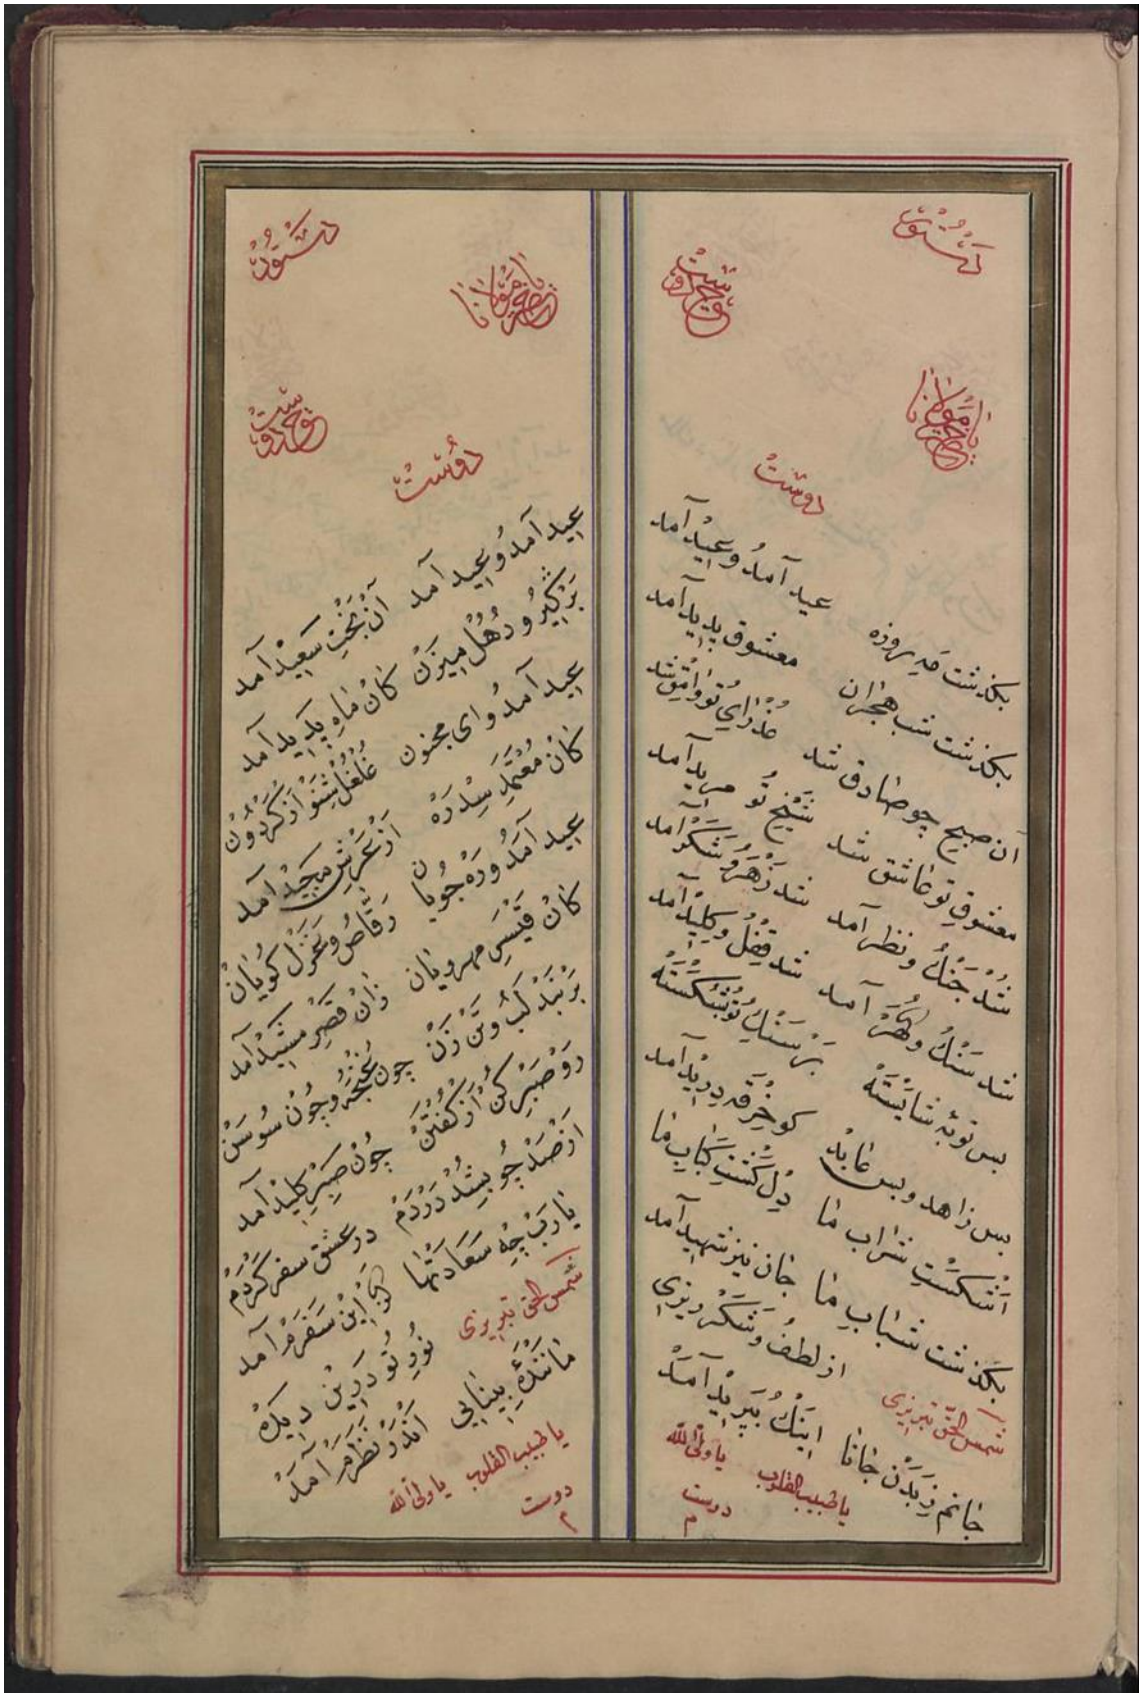 یا حضرت مولانا
دوست
بگذشت مه روزه عید آمدُ و عِیدْ آمد
بگذشت شب هِجْران معشوق پدید آمد
آن صبح چو صٰادق شد عَذْرٰایِ تُو وٰامِقْ شد
معشوقِ تو عٰاشق شد شَیْخِ تُو مرید آمد
شُدْ جَنْكُ و نظر آمد شد زَهْرُ و شَكَرْ آمد
شد سَنْكُ و كُهَرْ آمد شد قِفْلُ و كِلِیدْ آمد
بس توبهٔ شایَسْتَهْ بَرْ سَنْكِ تُو بِشْكَسْتَهْ
بس زاهد و بس عٰابِدْ كو خِرْقَه دِرِیدْ آمد
اَشْكَسْتِ شَرٰابِ مٰا دِلْ كَشْتِ كَبٰابِ مٰا
بگذشت شبابِ مٰا جٰان نیز شهید آمد
شمس الحقّ تبریزی از لطفُ و شَكَرْ ریزی
جٰانم زِ بَدَنْ جٰانا اینَكْ بِپَرِیدْ آمَدْ
یا طبیب القلوب یا ولیّ اللّٰه
دوست
م
یا حضرت مولانا
دوست
عید آمدُ و عِید آمد آنْ بَخْتِ سَعِیدْ آمد
بَرْگیرُ و دُهُلْ مِیزَنْ كانْ مٰاهِ پَدِید آمد
عِید آمدُ و ای مجنون غُلْغُلْ شِنَوْ اَزْ كَرْدُونْ
كانْ مُعْتَمَدِ سِدْرَهْ اَزْ عَرْشِ مَجِیدْ آمد
عید آمدُ و رَهْ جُویان رَقّٰاصُ و غَزَل كویٰانْ
كانْ قَیْسَرِ مهرویان زٰانْ قَصْرِ مَشِیدْ آمد
بَرْ بَنْدْ لَبُ و تَنْ زَنْ چون غُنْچَهُ و چُونْ سُوسَنْ
رَوْ صَبْرْ كُنْ اَزْ كُفْتَنْ چُونْ صَبْرْ كِلِیدْ آمد
از صَدْ چُو بِشُدْ دَرْدَمْ در عشق سفر كَرْدَمْ
یا رَبْ چِهْ سَعٰادَتْهٰا كَزْ اِینْ سَفَرَمْ آمد
شمس الحقّ تبریزی نُورِ تُو دَرِینْ دیدَهْ
مٰانَنْدَهٔ بینٰایی اَنْدَرْ نَظَرَمْ آمَدْ
یا طبیب القلوب یا ولیّ اللّٰه
دوست
م